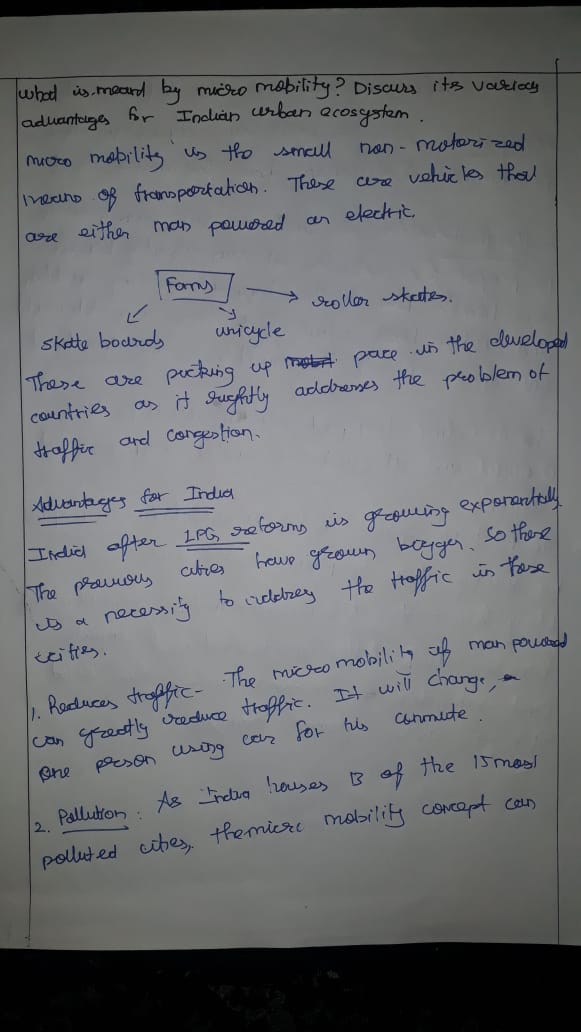 what is meard by micro mobility? Discuss its various
advantages for Indian urban ecosystem.
micro mobility is the small non-motorized
means of transportation. These are vehicles that
are either man powered or electric.
Forms
roller skates.
skate boards unicycle
These are picking up pace in the developed
countries as it rightly addresses the problem of
traffic and congestion.
Advantages for India
India after LPG reforms is growing exponentially
The previous cities have grown bigger. So there
is a necessity to address the traffic in these
cities.
1. Reduces traffic- The micromobility if man powered
can greatly reduce traffic. It will change,
One person using car for his commute.
2. Pollution: As India houses 13 of the 15 most
polluted cities, the micro mobility concept can